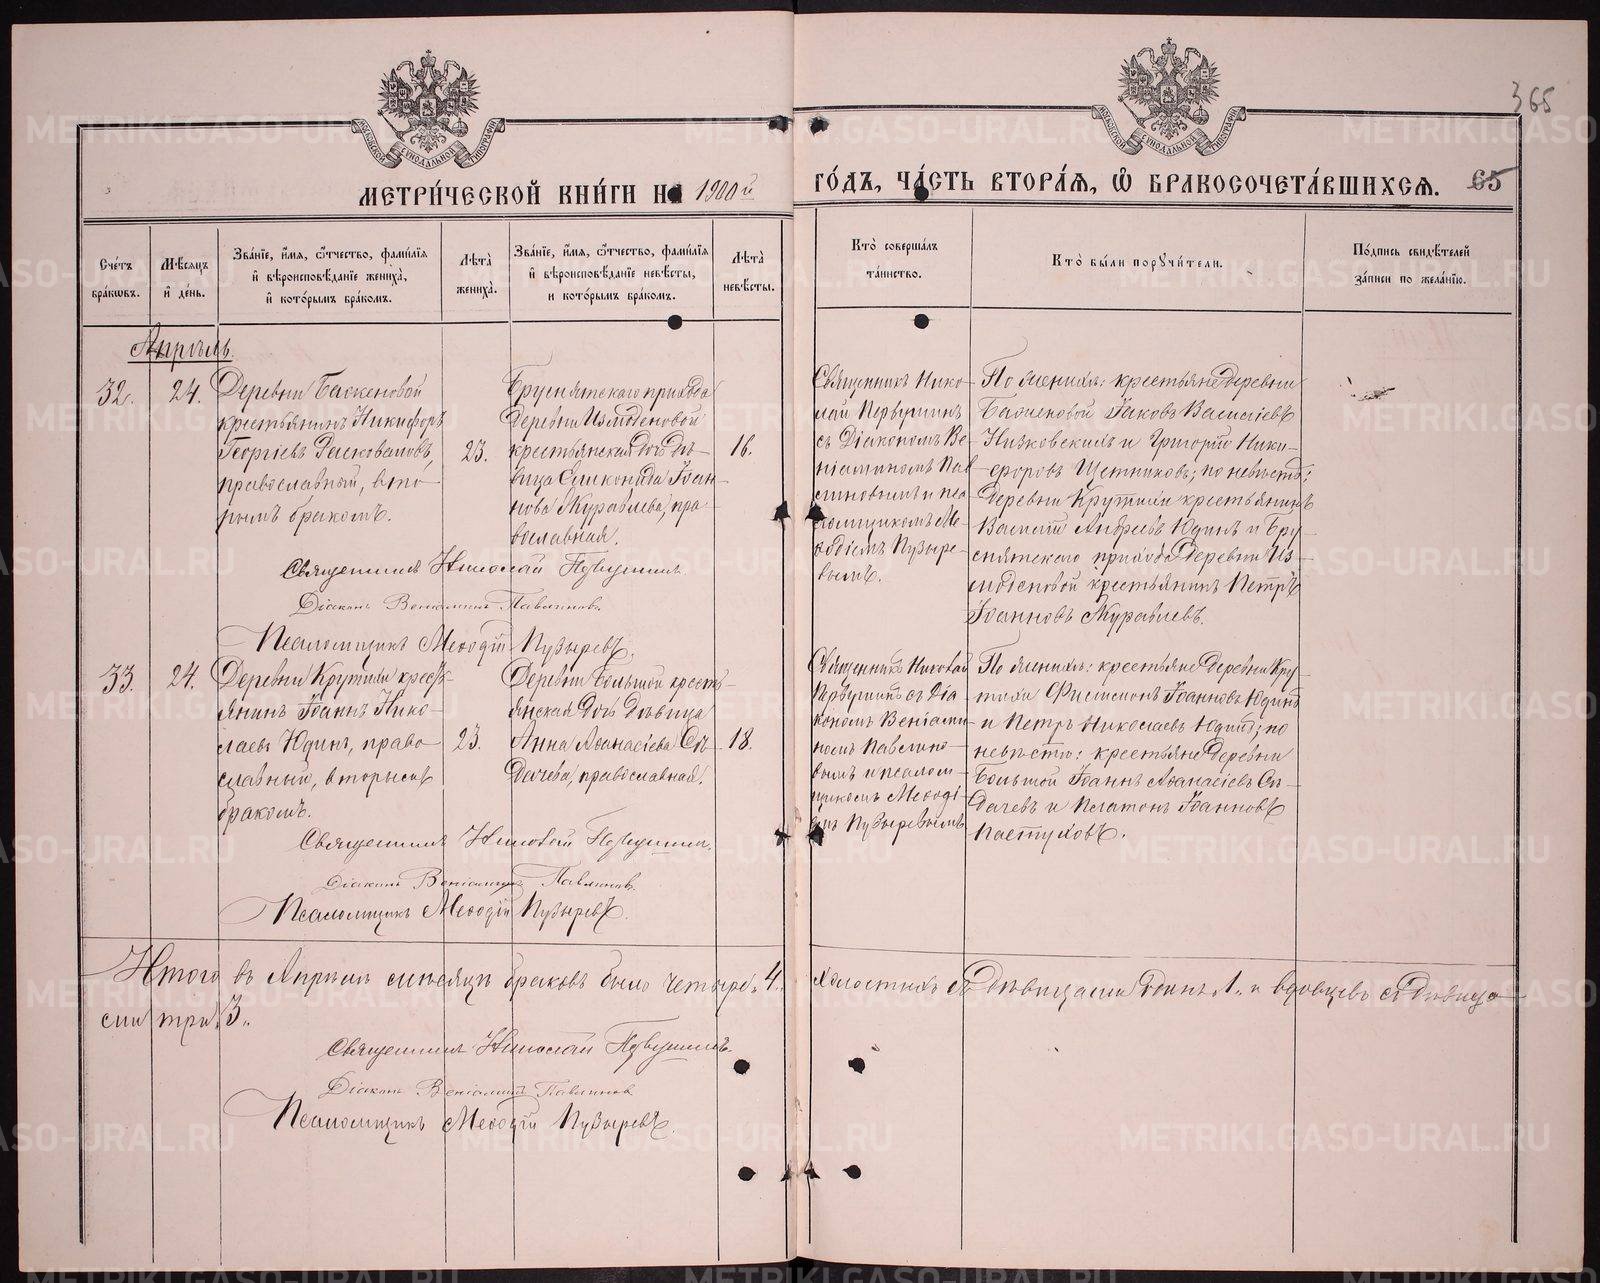 МЕТРИ́ЧЕСКОЙ КНИ́ГИ НА 1900й ГО́ДЪ, ЧА́СТЬ ВТОРА́Я, Ѡ БРАКОСОЧЕТА́ВШИХСЯ.
365
65
МОСКОВСКОЙ СѴНОДАЛЬНОЙ ТИПОГРАФІИ
МОСКОВСКОЙ СѴНОДАЛЬНОЙ ТИПОГРАФІИ
Сче́тъ бра́ковъ.
Мѣ́сяцъ и де́нь.
Зва́нїе, и́мя, ѻ҆́тчество, фами́лїя и҆ вѣроисповѣ́данїе жениха̀, и҆ кото́рымъ бра́комъ.
Лѣ́та жениха̀.
Зва́нїе, и́мя, ѻ҆́тчество, фами́лїя и҆ вѣроисповѣ́данїе невѣ́сты, и҆ кото́рымъ бра́комъ.
Лѣ́та невѣ́сты.
Кто̀ соверша́лъ та́инство.
Кто̀ бы́ли порꙋчи́тели.
По́дпись свидѣ́телей за́писи по жела́нїю.
Апрѣль.
32.
24.
Деревни Баскеновой
крестьянинъ Никифоръ
Георгіевъ
православный, вто-
рымъ бракомъ.
23.
Бруснятскаго прихода
Деревни Измоденовой
крестьянская дочь дѣ-
вица Іоан-
нова Журавлева, пра-
вославная.
16.
Священникъ Нико-
лай Первушинъ
съ Діакономъ Ве-
ніаминомъ Пав-
линовымъ и пса-
ломщикомъ Ме-
ѳодіемъ Пузыре-
вымъ.
По женихѣ: крестьяне Деревни
Баскеновой Іаковъ Василіевъ
Низковскихъ и Григорій Ники-
форовъ Щетниковъ; по невѣстѣ:
Деревни Крутихи крестьянинъ
Василій Андреевъ Юдинъ и Бру-
снятскаго прихода Деревни Из-
моденовой крестьянинъ Петръ
Іоанновъ Журавлевъ.
Священникъ Николай Первушинъ.
Діаконъ Веніаминъ Павлиновъ.
Псаломщикъ Меѳодій Пузыревъ.
33.
24.
Деревни Крутихи кресть-
янинъ Іоаннъ Нико-
лаевъ Юдинъ, право-
славный, вторымъ
бракомъ.
23.
Деревни Большой кресть-
янская дочь дѣвица
Анна Аѳанасіева Сѣ-
дачева, православная.
18.
Священникъ Николай
Первушинъ съ Діа-
кономъ Веніами-
номъ Павлино-
вымъ и псалом-
щикомъ Меѳоді-
емъ Пузыревымъ
По женихѣ: крестьяне Деревни Кру-
тихи Филимонъ Іоанновъ Юдинъ
и Петръ Николаевъ Юдинъ; по
невѣстѣ: крестьяне Деревни
Большой Іоаннъ Аѳанасіевъ Сѣ-
дачевъ и Платонъ Іоанновъ
Пастуховъ.
Священникъ Николай Первушинъ.
Діаконъ Веніаминъ Павлиновъ.
Псаломщикъ Меѳодій Пузыревъ.
Итого въ Апрѣлѣ мѣсяцѣ браковъ было четыре „4„ холостыхъ съ дѣвицами одинъ „1„ и вдовцевъ съ дѣвица-
ми три „3„
Священникъ Николай Первушинъ.
Діаконъ Веніаминъ Павлиновъ
Псаломщикъ Меѳодій Пузыревъ.
METRIKI.GASO-URAL.RU